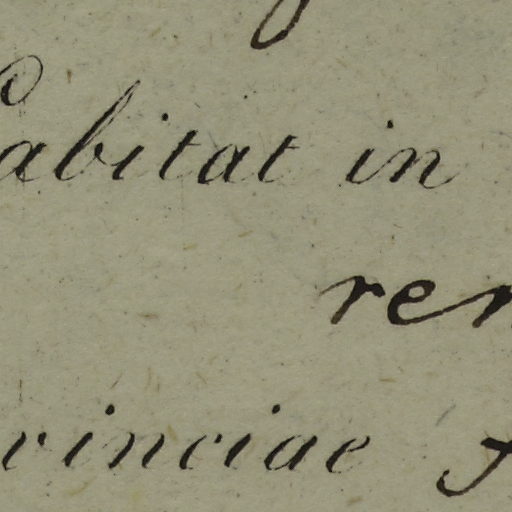 abitat in
ren
vinciae